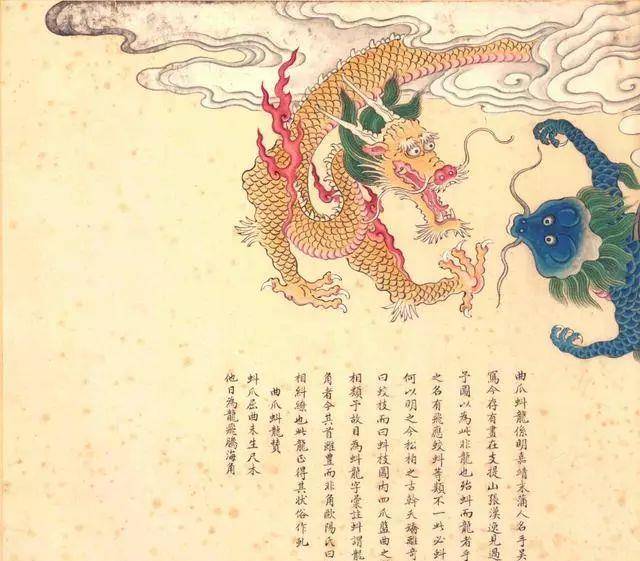 曲爪蚪龍係明嘉靖末蒲人名手吳
寫今存有畫在支提山張漢逸見過
予圖以為此非龍也殆蚪而龍者乎
之名有飛應蛟蚪等類不一此必蚪
何以明之今松柏之古幹夭矯離奇
曰蛟枝而曰蚪枝圖內四爪盤曲之
相類予故目為蚪龍字彙註蚪謂龍
角者今其首雖豐而非角歐陽氏曰
相糾繚也此龍正得其狀俗作虬
曲爪蚪龍贊
蚪爪屈曲未生尺木
他日為龍飛騰海角